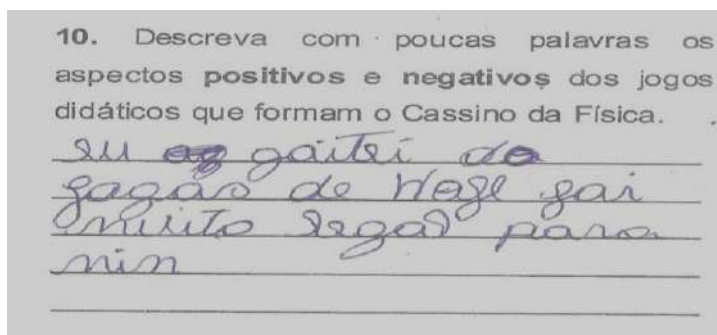 10. Descreva com poucas palavras os
aspectos positivos e negativos dos jogos
didáticos que formam o Cassino da Física.
eu gaitei do
gagão de Hoge gai
muito legal para
min